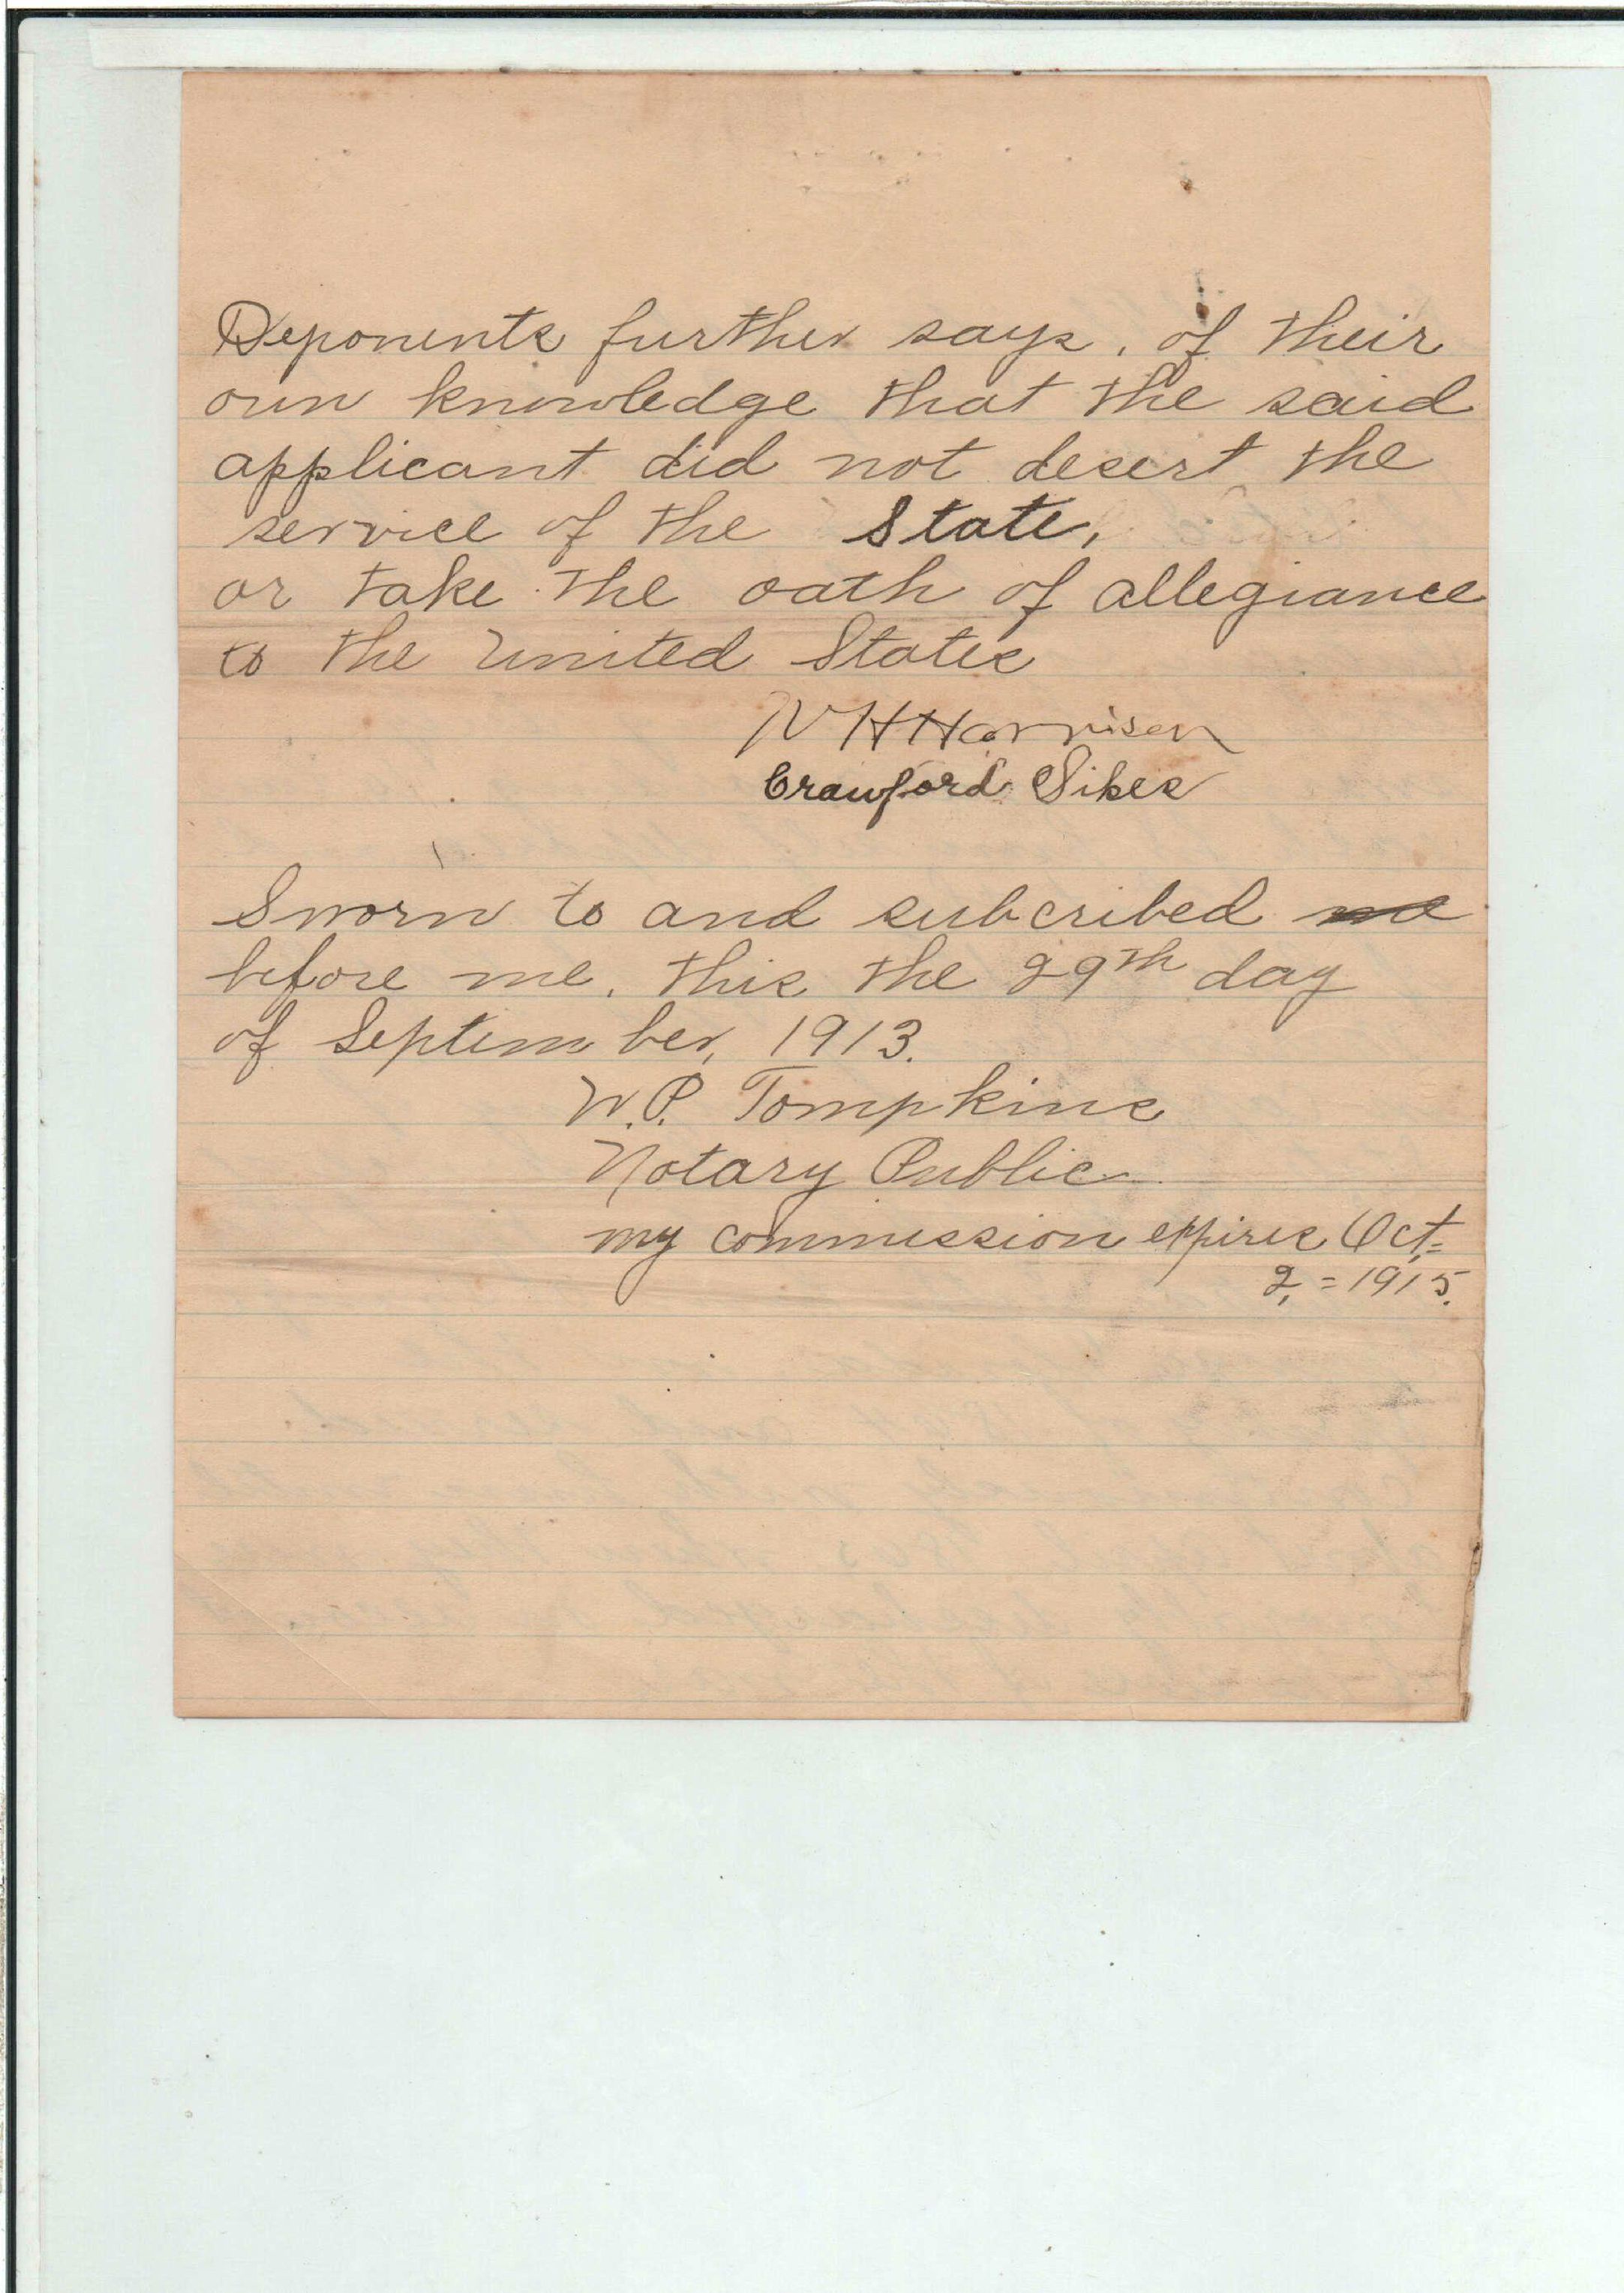 Deponents further says, of their
own knowledge that the said
applicant did not desert the
service of the State,
or take the oath of allegiance
to the United States
W H Harrison
Crawford Sikes
Sworn to and subcribed
before me, this the 29th day
of September, 1913.
W.P. Tompkins
Notary Public
my commission expires Oct.=
2, = 1915.